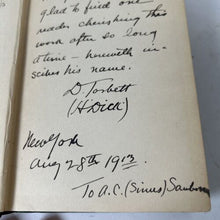 glad to find one
reader cherishing this
work after so long
a time – herewith in-
scribes his name.
D. Torbett
(H. Dick)
New York
Aug 28th 1913.
To A. C. (Sinus) Sanborn